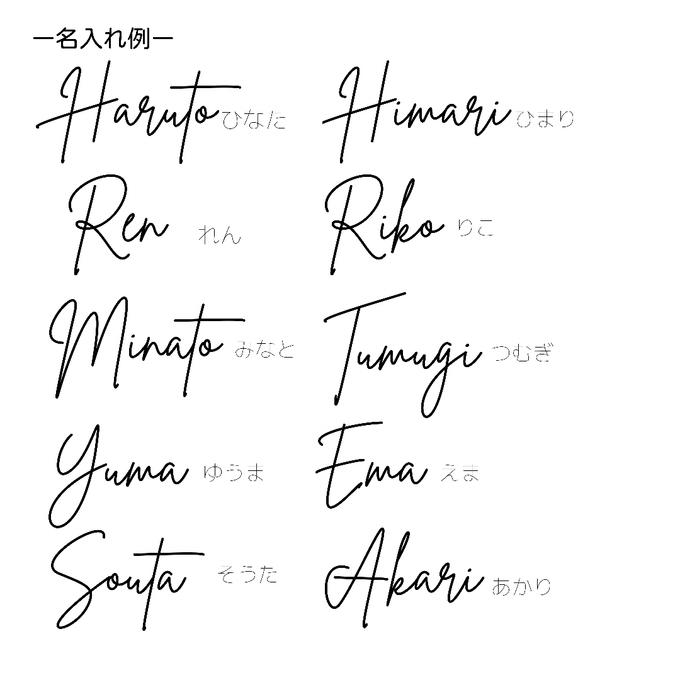 ー名入れ例ー
Haruto ひなた
Himari ひまり
Ren れん
Riko りこ
Minato みなと
Tumugi つむぎ
Yuma ゆうま
Ema えま
Souta そうた
Akari あかり